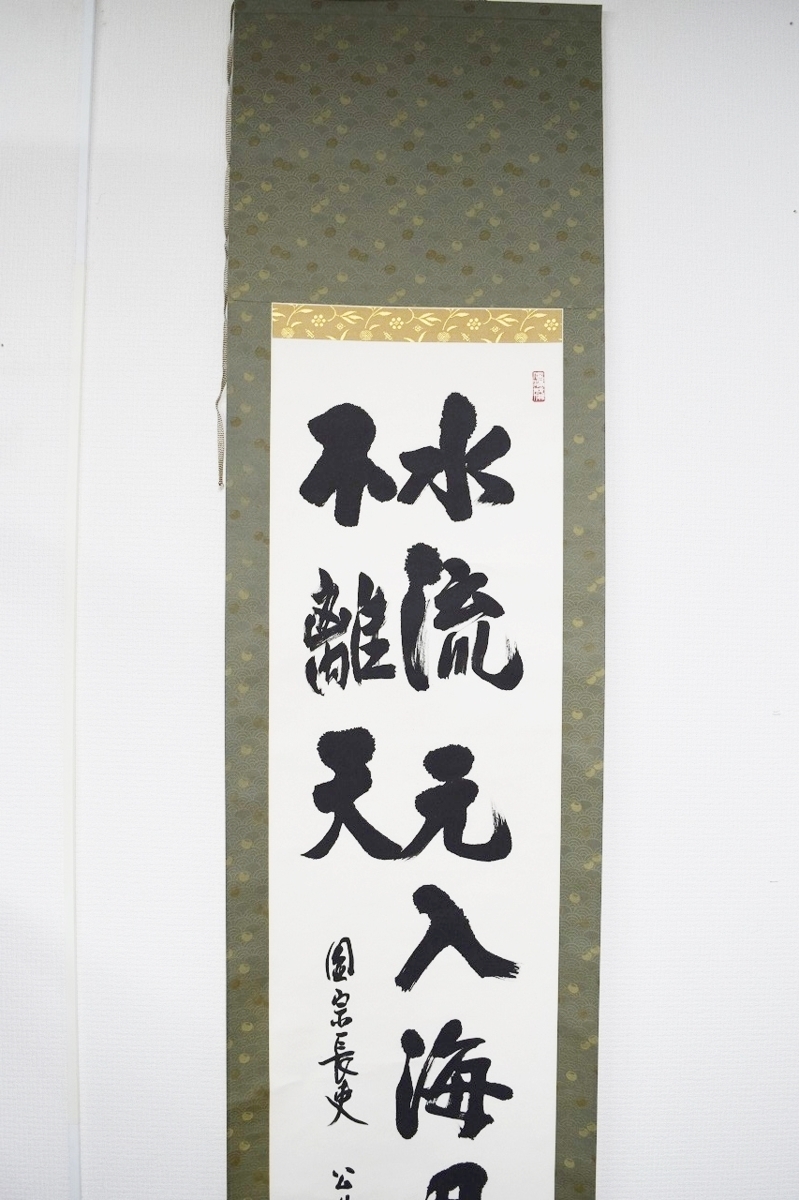 水流元入海
不離天
園宗長吏 公